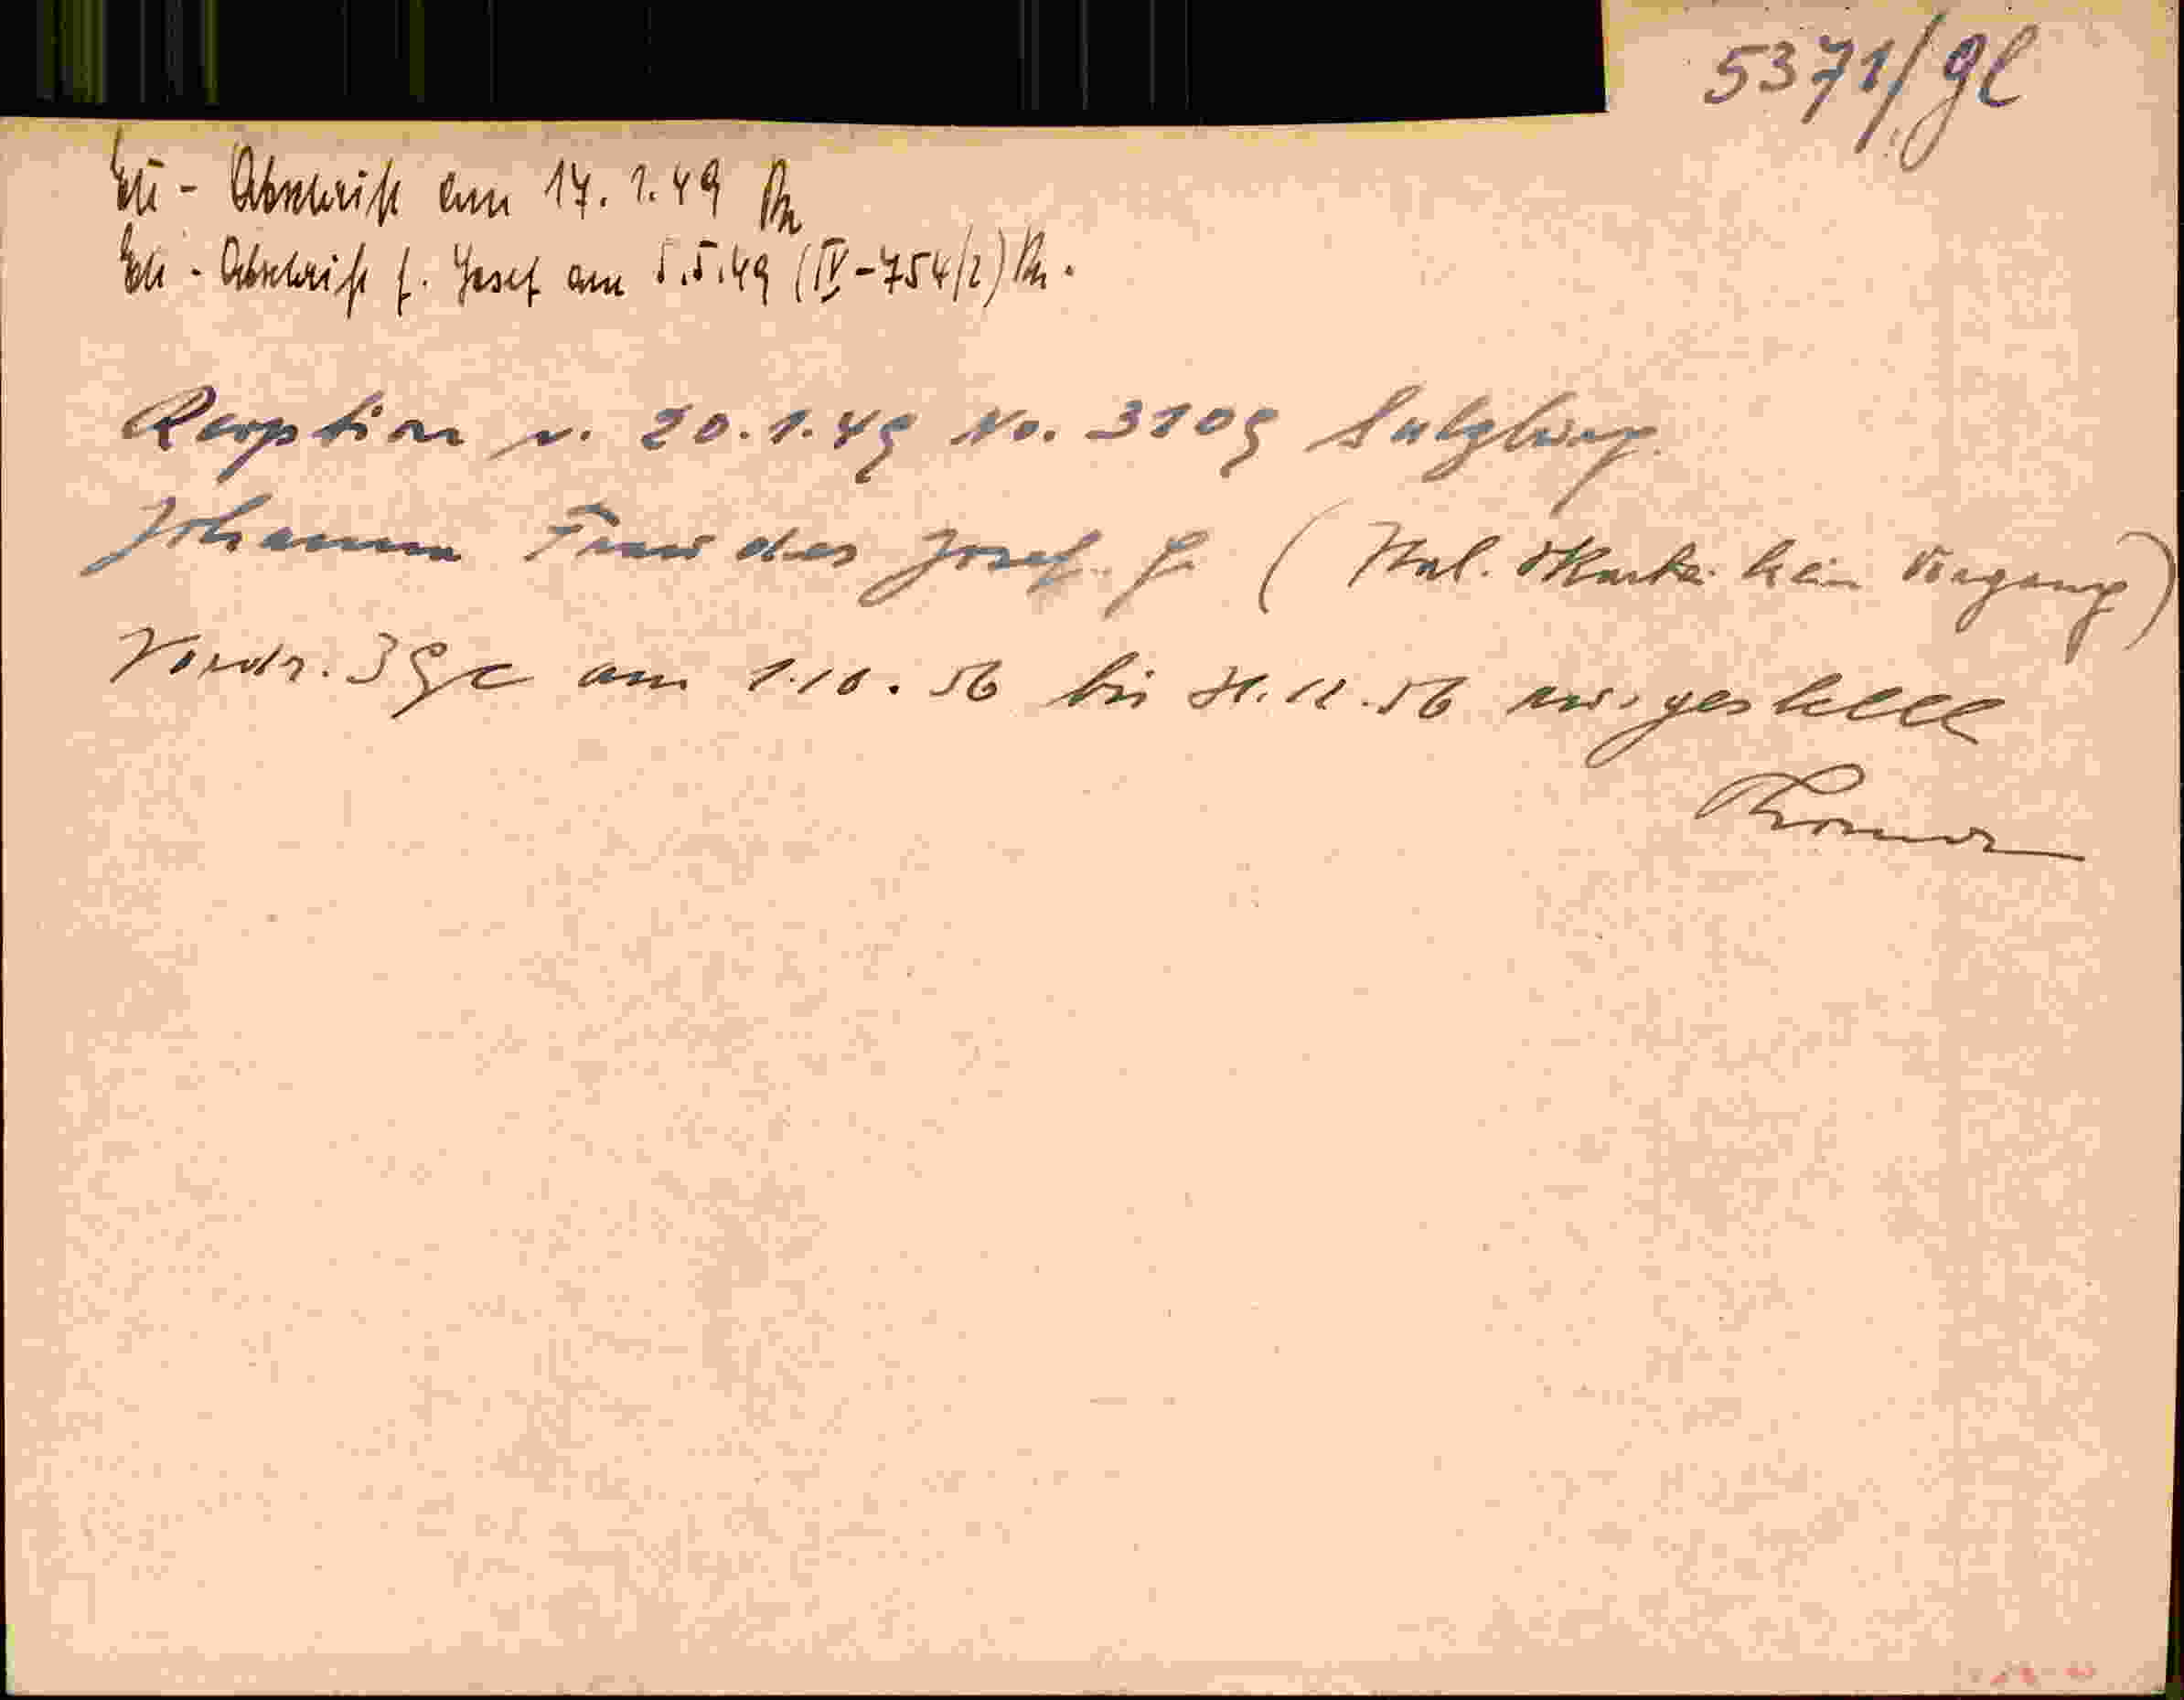 5371/gl
Etu - Abschrift am 17.1.49
Etu - Abschrift f. Josef am 5.5.49 (IV-754/2)
Reoption v. 20.1.49 No. 3109 Salzburg.
Johanna Frau des Josef. G. (Ital. Kartei kein Vorgang)
Vordr. 39c am 1.10.56 bis 31.12.56 ausgestellt